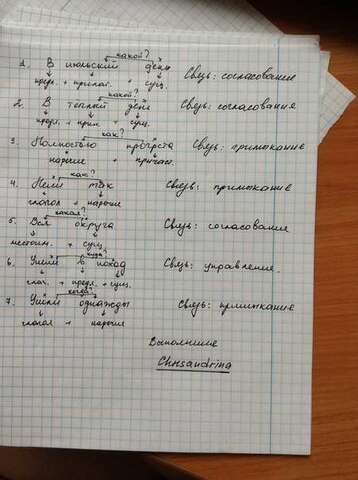 какой?
1. В июльский день Связь: согласование
предл. + прилаг. + сущ.
какой?
2. В теплый день Связь: согласования
предл. + прил. + сущ.
как?
3. Полностью Связь: примыкание
наречие + причаст.
как?
4. так Связь: примыкание
глагол + наречие
какая?
5. Вся округа Связь: согласование
местоим. + сущ.
куда?
6. Ушли в поход Связь: управление
глаг. + предл. + сущ.
когда?
7. Ушли однажды Связь: примыкание
глагол + наречие
Выполнила
Chrisandrina